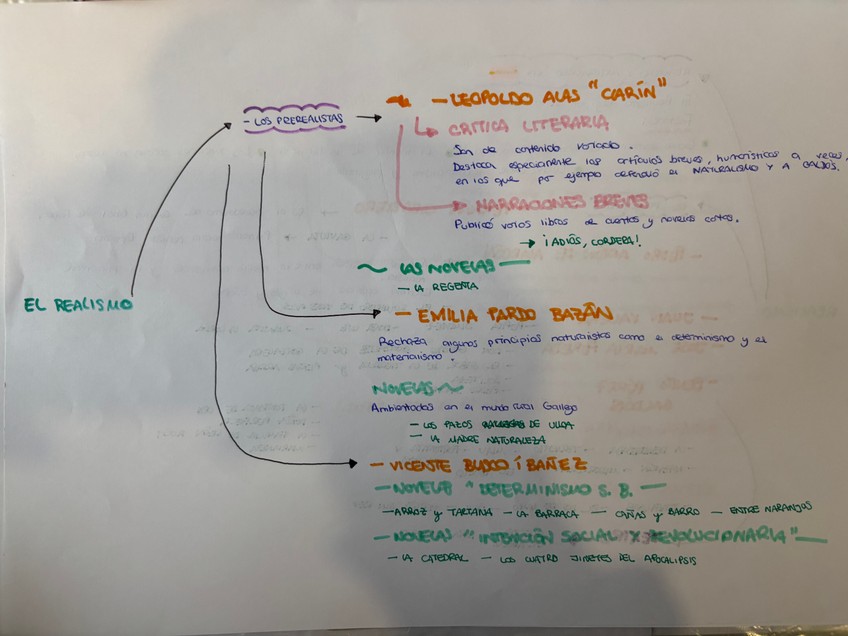 EL REALISMO
- LOS PREREALISTAS
- LEOPOLDO ALAS "CLARÍN"
CRITICA LITERARIA
Son de contenido variado.
Destaca especialmente los artículos breves, humorísticos a veces,
en los que por ejemplo defendió el NATURALISMO Y A GALDÓS.
NARRACIONES BREVES
Publicó varios libros de cuentos y novelas cortas.
¡ADIÓS, CORDERA!
LAS NOVELAS
- LA REGENTA
- EMILIA PARDO BAZÁN
Rechaza algunos principios naturalistas como el determinismo y el
materialismo.
NOVELAS
Ambientadas en el mundo rural Gallego
- LOS PAZOS DE ULLOA
- LA MADRE NATURALEZA
- VICENTE BLASCO ÍBAÑEZ
- NOVELAS "DETERMINISMO S. B. -
- ARROZ y TARTANA - LA BARRACA - CAÑAS y BARRO - ENTRE NARANJOS
- NOVELAS "INTENCIÓN SOCIAL Y REVOLUCIONARIA" -
- LA CATEDRAL - LOS CUATRO JINETES DEL APOCALIPSIS